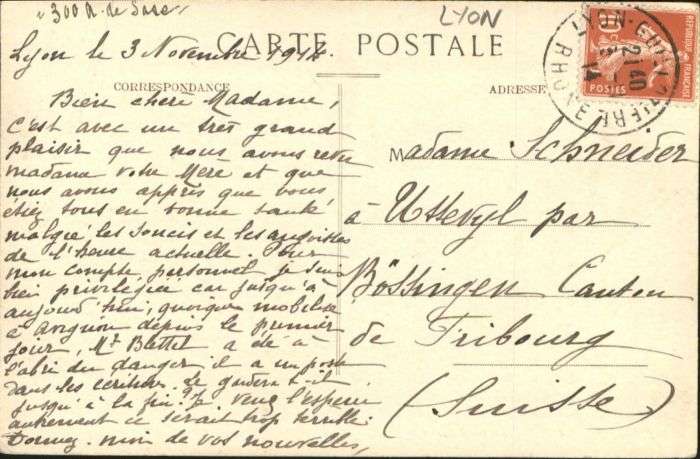 "300 N. de Sare"
LYON
Lyon le 3 Novembre 1914
CARTE POSTALE
CORRESPONDANCE
ADRESSE
Bien chère Madame,
C'est avec un très grand
plaisir que nous avons revu
madame votre Mère et que
nous avons appris que vous
étiez tous en bonne santé
malgré les soucis et les angoisses
de l'heure actuelle. Pour
mon compte, personnel je suis
bien privilégiée car jusqu'à
aujourd'hui, quoique mobilisé
à Avignon depuis le premier
jour, Mr Blettet a été à
l'abri du danger il a un poste
dans les écritures. Le gardera-t-il
jusqu'à la fin. Je veux l'espérer
autrement ce serait trop terrible.
Donnez-moi de vos nouvelles,
Madame Schneider
à Ussevyl par
Bössingen Canton
de Fribourg
(Suisse)
REPUBLIQUE FRANÇAISE
POSTES
LYON-GUILLOTIERE
21 40
3
14
RHONE